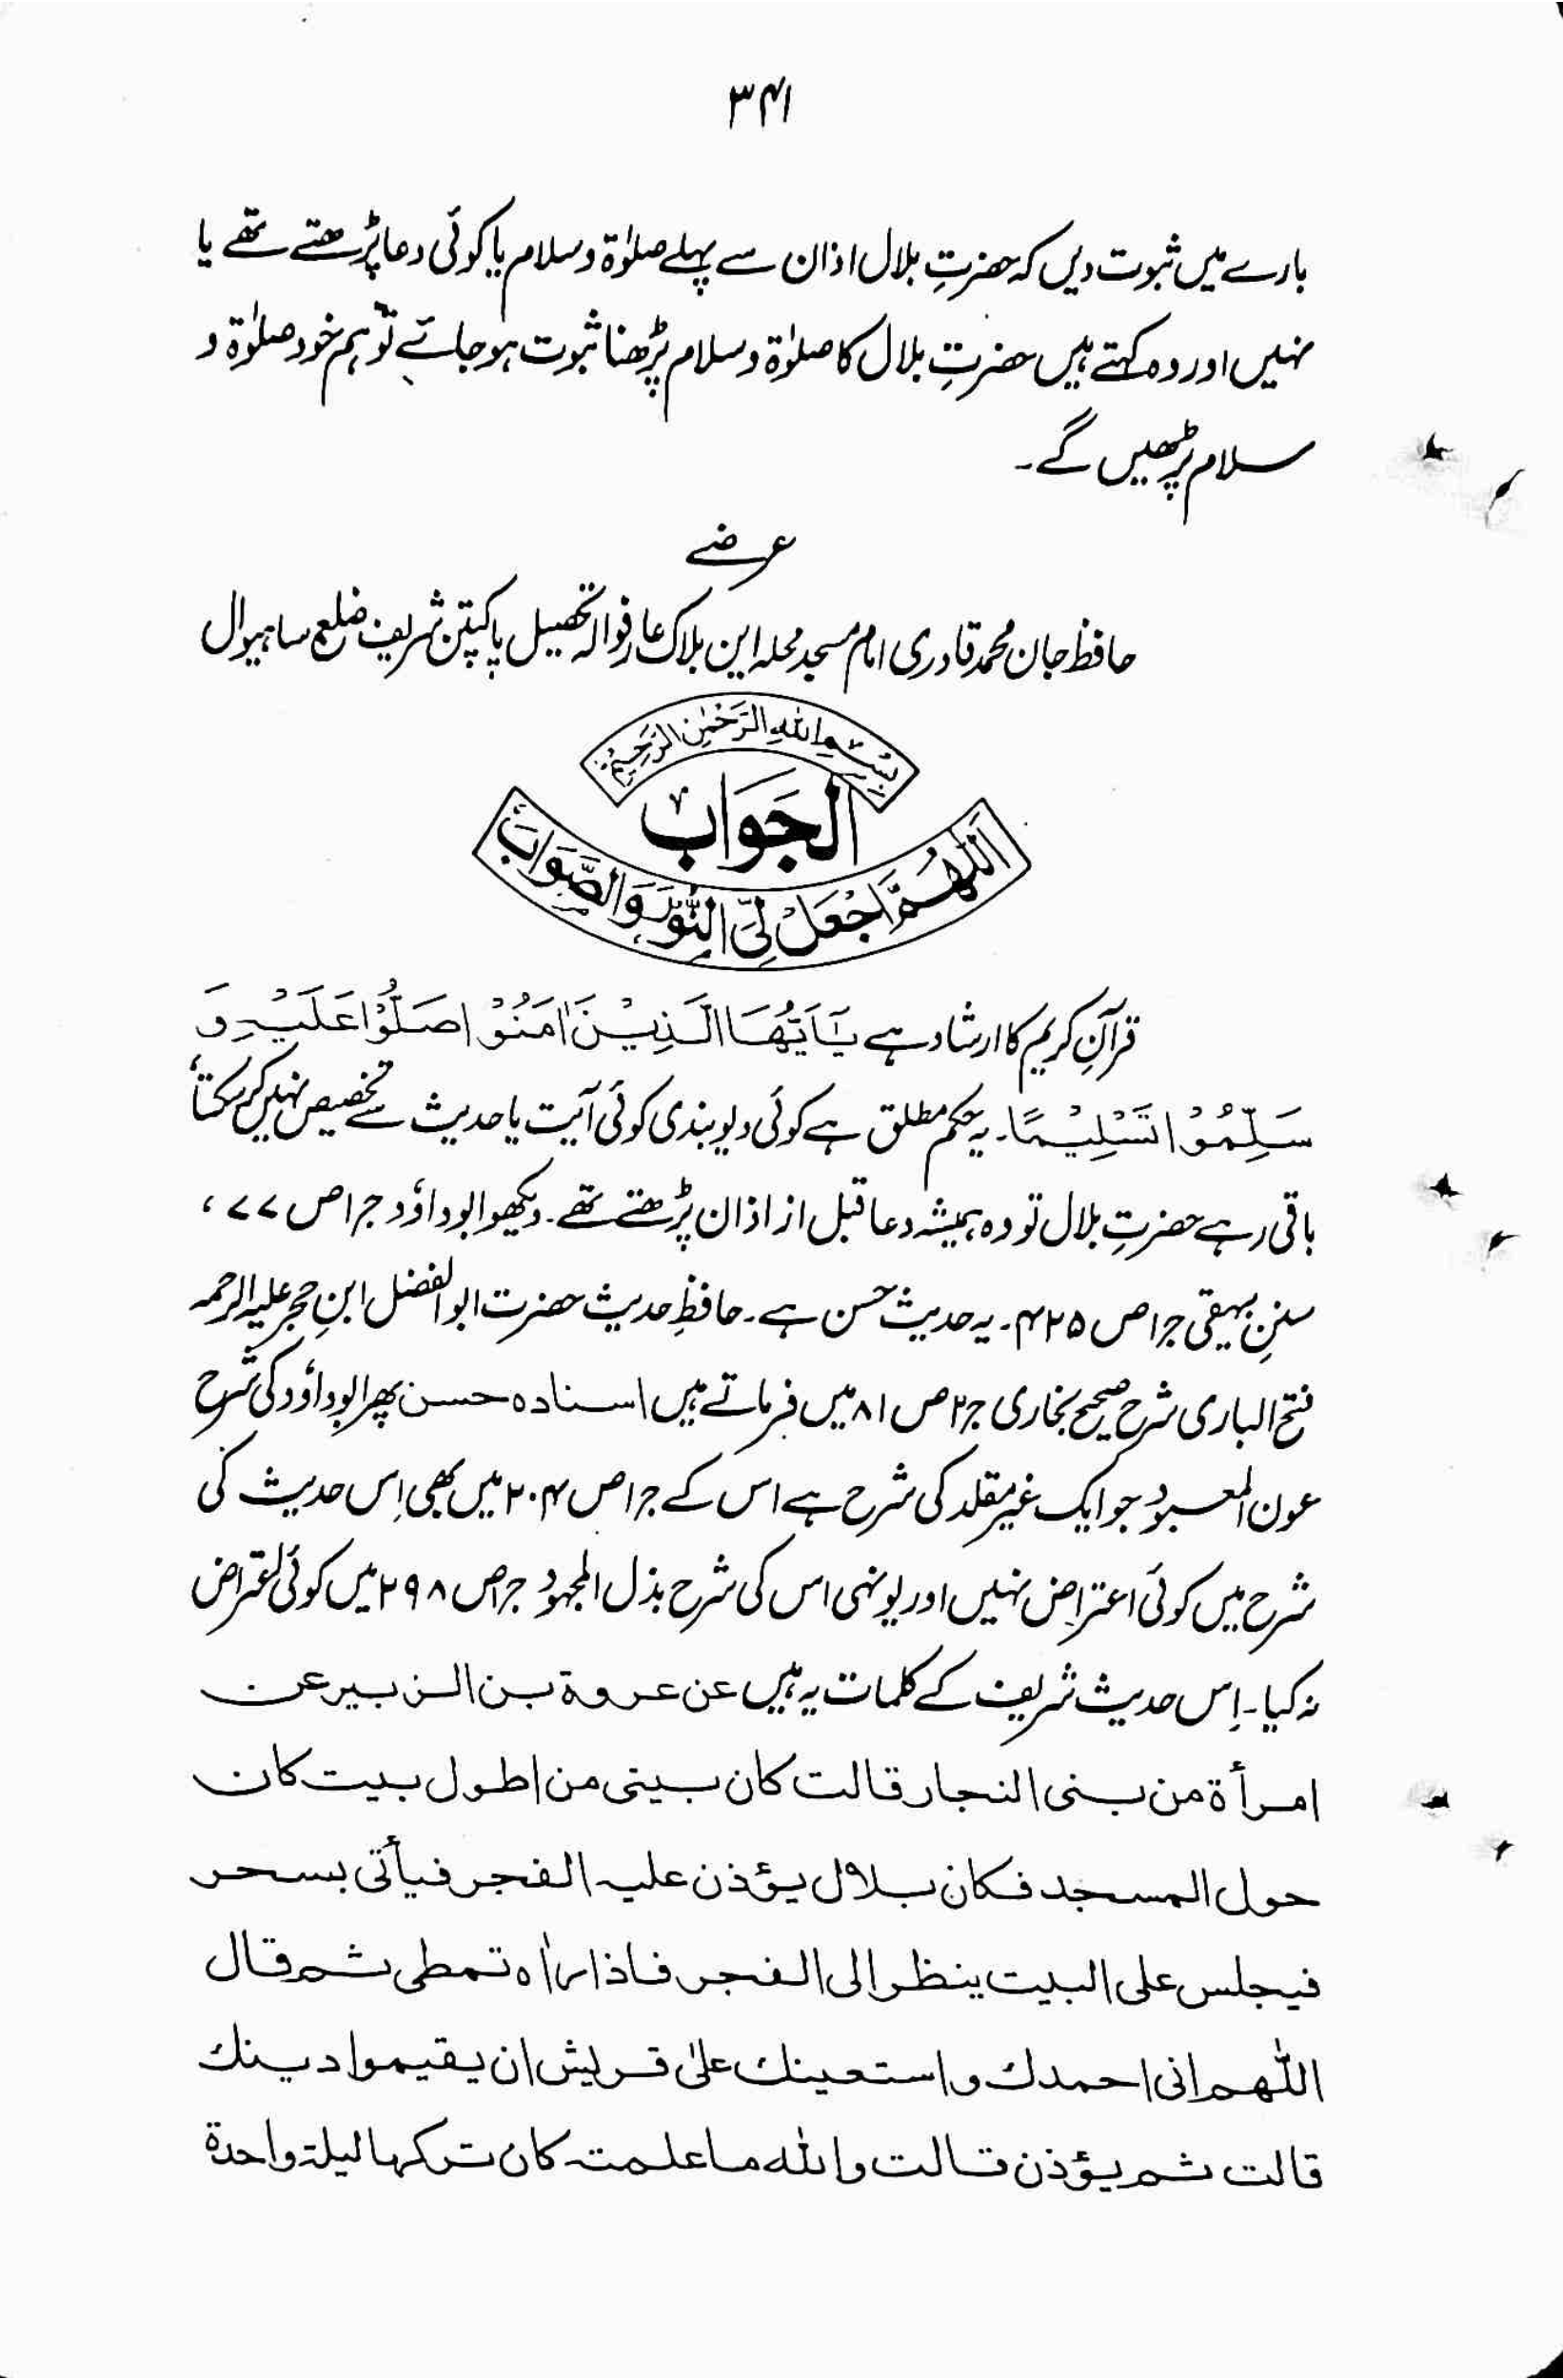 ۳۴۱
بارے میں ثبوت دیں کہ حضرتِ بلال اذان سے پہلے صلوٰۃ و سلام یا کوئی دعا پڑھتے تھے یا
نہیں اور وہ کہتے ہیں حضرتِ بلال کا صلوٰۃ و سلام پڑھنا ثبوت ہو جائے تو ہم خود صلوٰۃ و
سلام پڑھیں گے۔
عرضے
حافظ جان محمد قادری امام مسجد محلہ این بلاک عارفوالہ تحصیل پاکپتن شریف ضلع ساہیوال
بِسْمِ اللهِ الرَّحْمٰنِ الرَّحِيْمِ
اَلْجَوَابُ
اَللّٰهُمَّ اجْعَلْ لِیَ النُّوْرَ وَالصَّوَابَ
قرآنِ کریم کا ارشاد ہے یٰٓاَیُّهَا الَّذِیْنَ اٰمَنُوْا صَلُّوْا عَلَیْهِ وَ
سَلِّمُوْا تَسْلِیْمًا۔ یہ حکم مطلق ہے کوئی دیوبندی کوئی آیت یا حدیث سے تخصیص نہیں کر سکتا،
باقی رہے حضرتِ بلال تو وہ ہمیشہ دعا قبل از اذان پڑھتے تھے۔ دیکھو ابوداؤد جر۱ ص ۷۷،
سننِ بیہقی جر۱ ص ۴۲۵۔ یہ حدیث حسن ہے۔ حافظِ حدیث حضرت ابوالفضل ابنِ حجر علیہ الرحمہ
فتح الباری شرح صحیح بخاری جر۲ ص ۸۱ میں فرماتے ہیں اسنادہ حسن پھر ابوداؤد کی شرح
عون المعبود جو ایک غیر مقلد کی شرح ہے اس کے جر۱ ص ۲۰۴ میں بھی اِس حدیث کی
شرح میں کوئی اعتراض نہیں اور یونہی اس کی شرح بذل المجہود جر۱ص ۲۹۸ میں کوئی اعتراض
نہ کیا۔ اِس حدیث شریف کے کلمات یہ ہیں عن عروة بن الزبیر عن
امرأة من بنی النجار قالت کان بیتی من اطول بیت کان
حول المسجد فکان بلال یؤذن علیہ الفجر فیأتی بسحر
فیجلس علی البیت ینظر الی الفجر فاذا راٰہ تمطی ثم قال
اللّٰهم انی احمدك و استعینك علیٰ قریش ان یقیموا دینك
قالت ثم یؤذن قالت والله ما علمتہ کان ترکہا لیلۃ واحدة